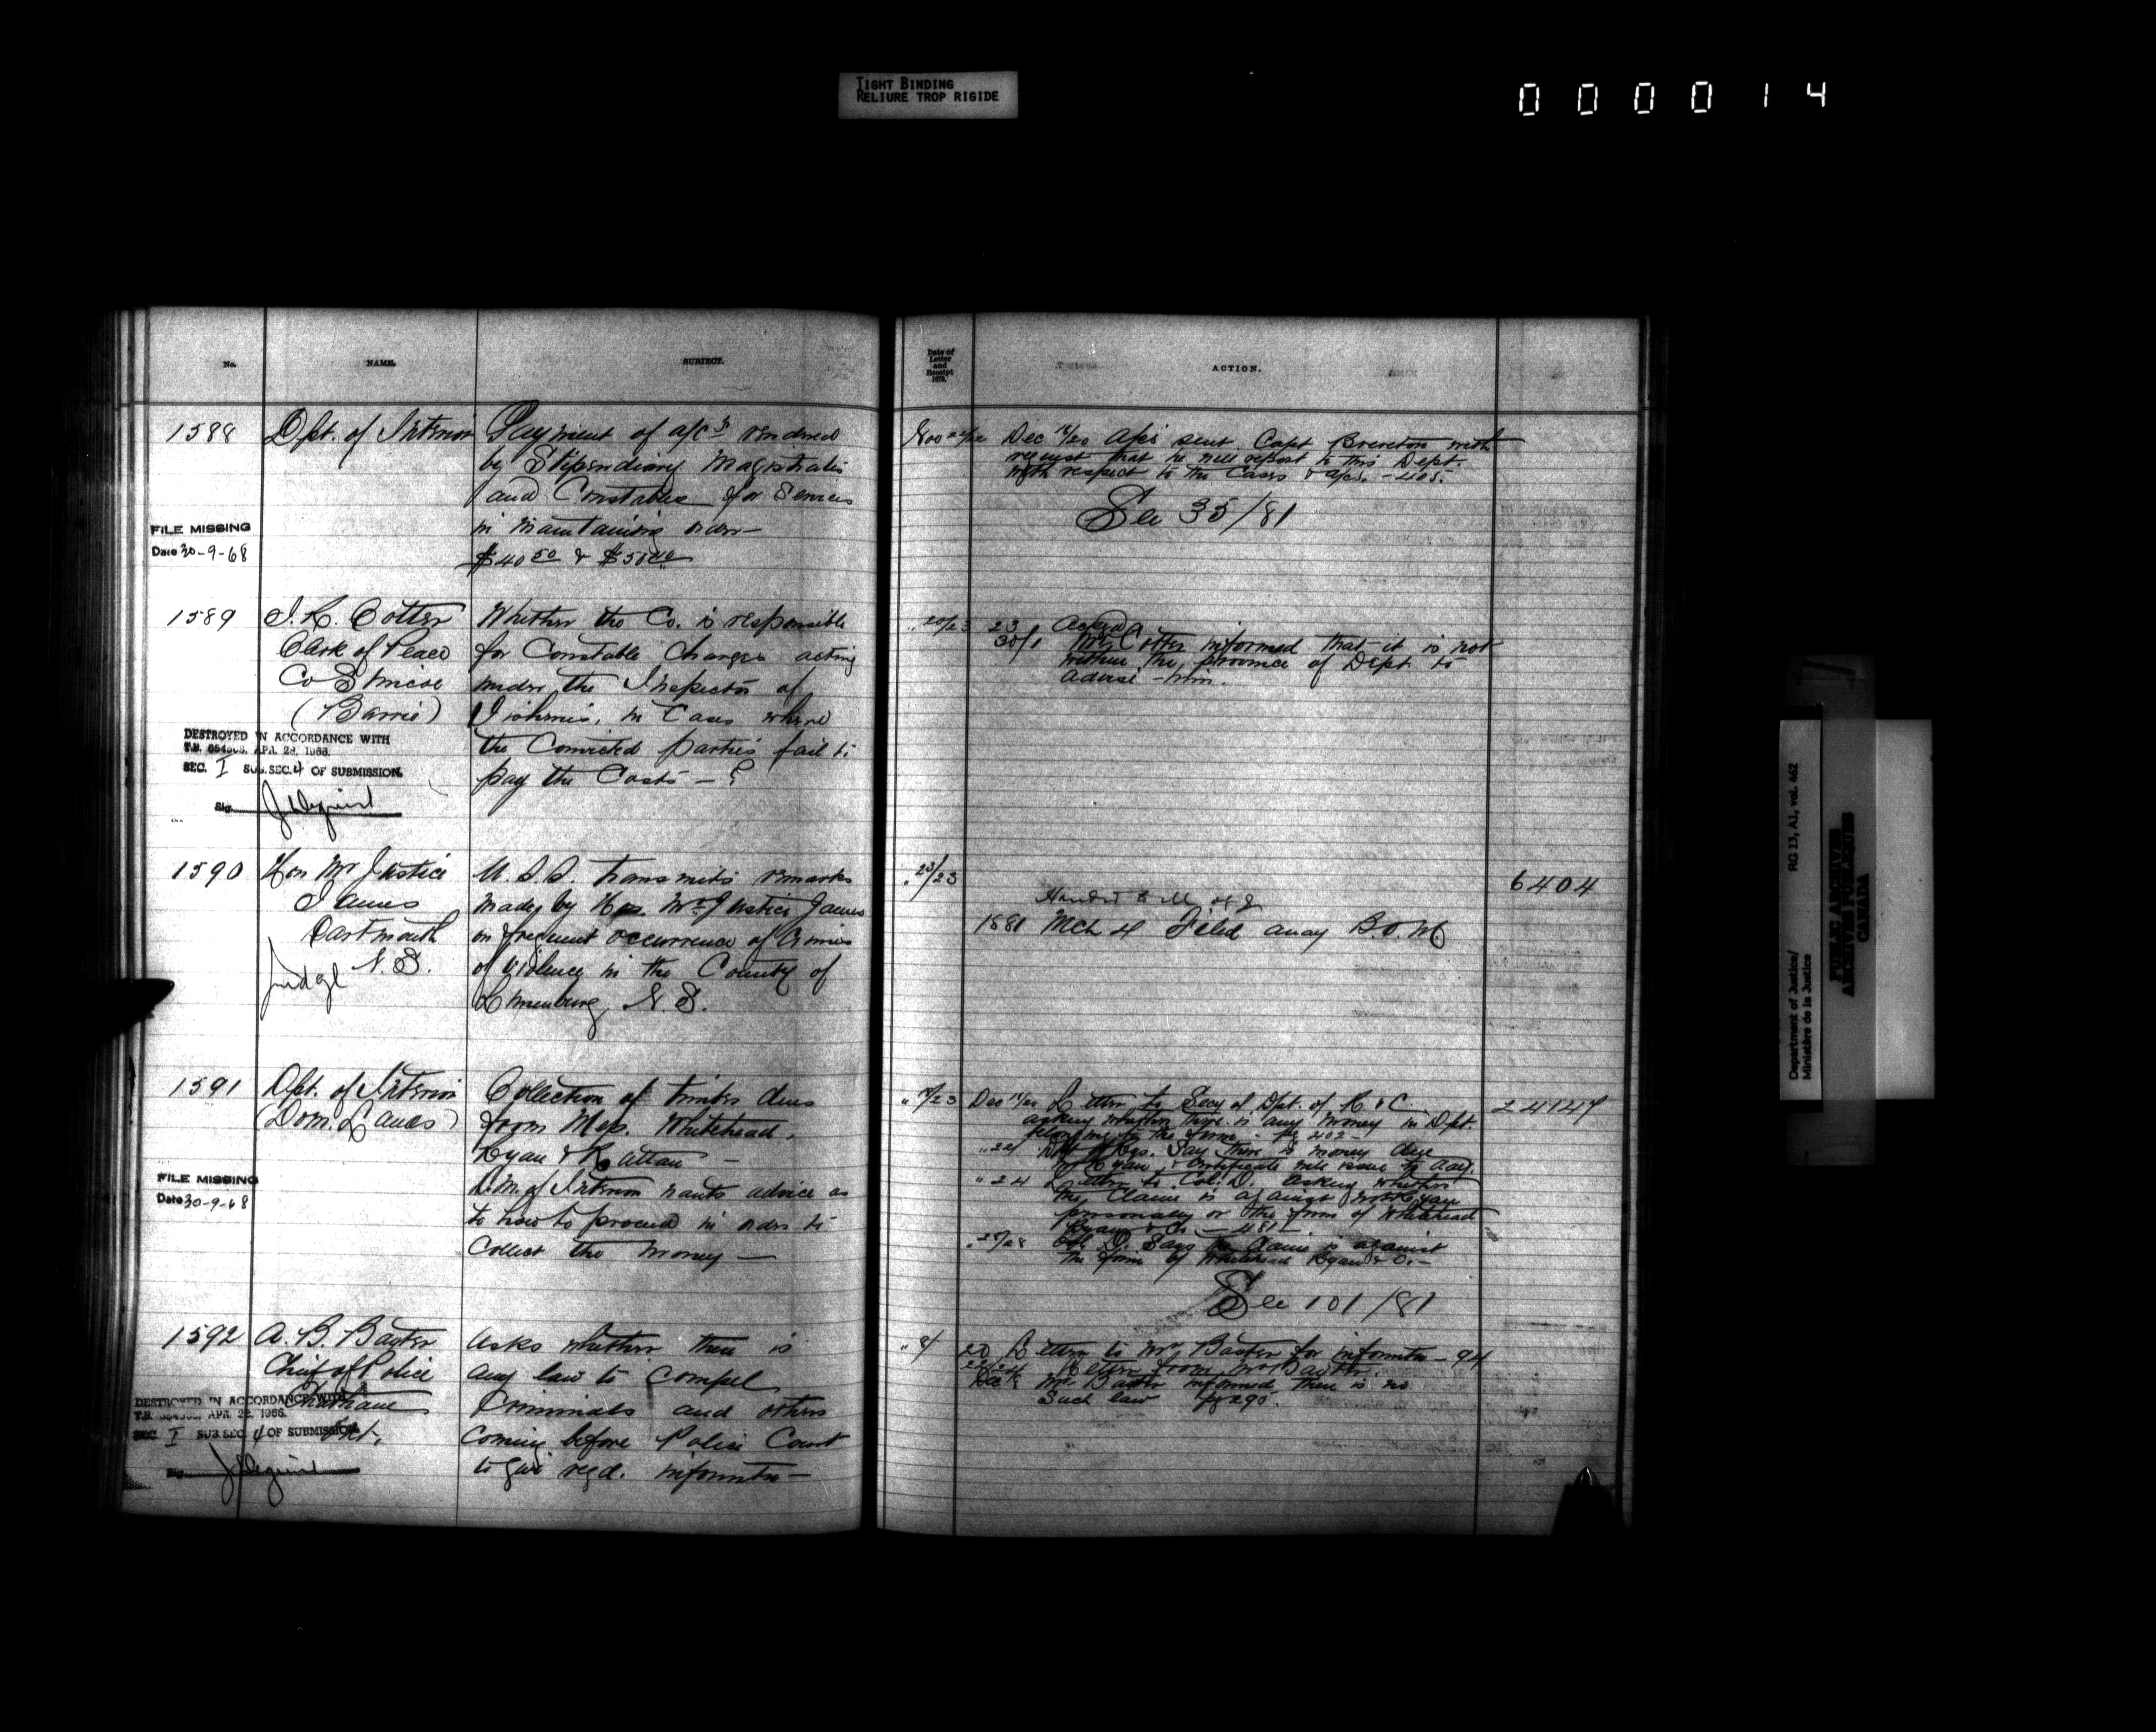 TIGHT BINDING
RELIURE TROP RIGIDE
000014
No.
NAME.
SUBJECT.
1588
Dpt. of Interior
Payment of a/cs rendered
by Stipendiary Magistrates
and Constables for Services
in maintaining order —
$40 50 & $50 40
FILE MISSING
Date 30-9-68
1589
J. R. Cotter
Clerk of Peace
Co Simcoe
(Barrie)
Whether the Co. is responsible
for Constable Charges acting
under the Inspector of
Fisheries, in Cases where
the Convicted parties fail to
pay the Costs — ?
DESTROYED IN ACCORDANCE WITH
T.B. APR. 28, 1966.
SEC. I SUB.SEC. 4 OF SUBMISSION.
Sig.
1590
Hon Mr Justice
James
Dartmouth
N. S.
Judge
U. S. S. transmits remarks
made by Hon. Mr Justice James
on frequent occurrence of Crimes
of violence in the County of
Lunenburg, N. S.
1591
Dpt. of Interior
(Dom. Lands)
Collection of timber dues
from Mess. Whitehead,
Ryan & Ruttan —
D.M. of Interior wants advice as
to how to proceed in order to
Collect the money —
FILE MISSING
Date 30-9-68
1592
A. B. Baxter
Chief of Police
Chatham
Ont.
asks whether there is
any law to compel
Criminals and others
coming before Police Court
to give reqd. informtn —
DESTROYED IN ACCORDANCE WITH
T.B. APR. 28, 1966.
SEC. I SUB SEC. 4 OF SUBMISSION.
Sig.
Date of
Letter
and
Receipt
ACTION.
Dec 18/20 a/cs sent Capt Brereton with
request that he will report to this Dept.
with respect to the Cases & a/cs. - 405.
See 35/81
" 20/23
23 Ackd
30/1 Mr. Cotter informed that it is not
within the province of Dept. to
advise him.
" 23/23
6404
Handed to M. of J
1881 Mch 4 Filed away
Dec Letter to Secy of Dpt. of R & C.
asking whether there is any money in Dpt.
belonging to the firm - pg 402 -
" 22 Say there is money due
Mr Ryan & Certificate will issue
" 24 Letter to Col. D. asking whether
the Claim is against Mr Ryan
personally or the firm of Whitehead
Ryan & Co - 481 -
" 28 Col. D. Says the Claim is against
the firm of Whitehead Ryan & Co. -
See 101/81
" 8/
20 Letter to Mr Baxter for informtn - 94
Letter from Mr Baxter.
Dec 8 Mr Baxter informed there is no
such law pg 295.
Department of Justice/
Ministère de la Justice
RG 13, A1, vol. 462
PUBLIC ARCHIVES
ARCHIVES PUBLIQUES
CANADA